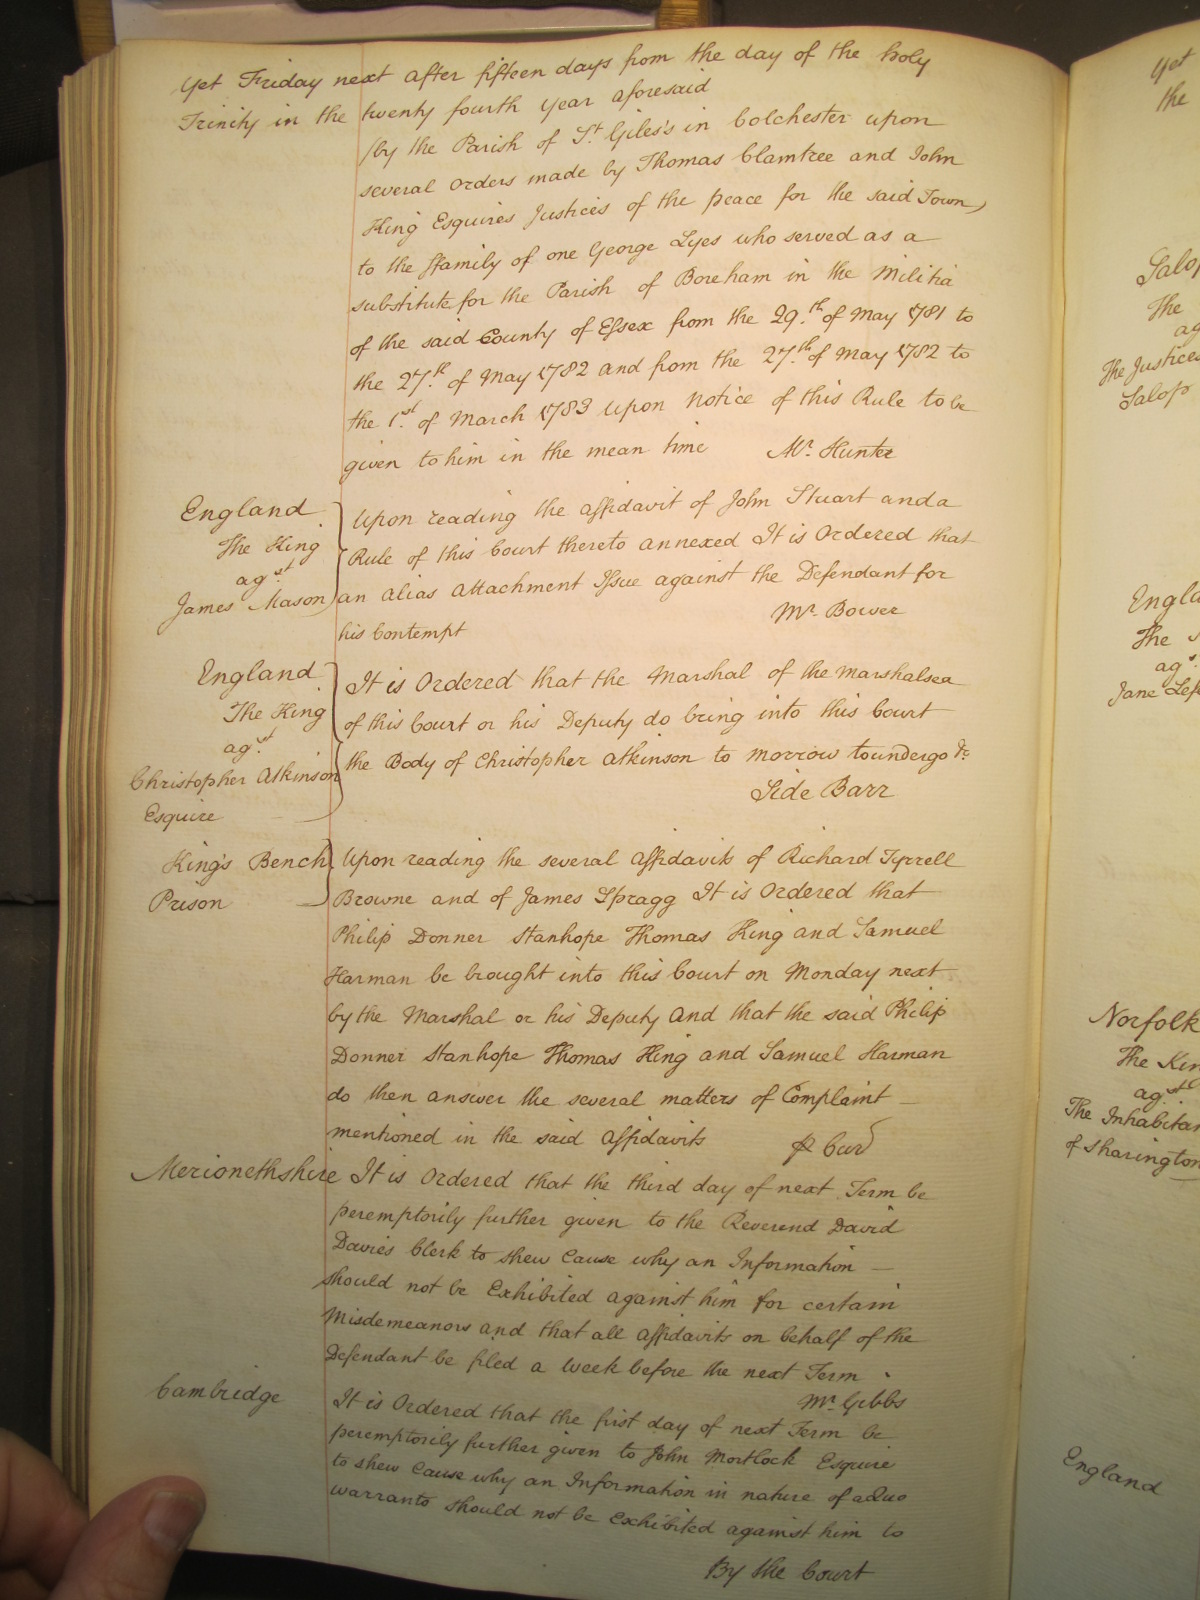 Yet Friday next after fifteen days from the day of the holy
Trinity in the twenty fourth year aforesaid
by the Parish of St. Giles's in Colchester upon
several orders made by Thomas Clamtree and John
King Esquires Justices of the peace for the said Town)
to the ffamily of one George Lyes who served as a
substitute for the Parish of Boreham in the Militia
of the said County of Essex from the 29th of May 1781 to
the 27th of May 1782 and from the 27th of May 1782 to
the 1st of March 1783 upon notice of this Rule to be
given to him in the mean time Mr. Hunter
England
The King
agst
James Mason
Upon reading the affidavit of John Stuart and a
Rule of this Court thereto annexed It is Ordered that
an alias attachment Issue against the Defendant for
his Contempt Mr. Bower
England
The King
agst
Christopher Atkinson
Esquire
It is Ordered that the Marshal of the Marshalsea
of this Court or his Deputy do bring into this Court
the Body of Christopher Atkinson to morrow to undergo &c
Side Barr
King's Bench
Prison
Upon reading the several affidavits of Richard Tyrrell
Browne and of James Spragg It is Ordered that
Philip Donner Stanhope Thomas King and Samuel
Harman be brought into this Court on Monday next
by the Marshal or his Deputy and that the said Philip
Donner Stanhope Thomas King and Samuel Harman
do then answer the several matters of Complaint
mentioned in the said affidavits P Cur
Merionethshire It is Ordered that the third day of next Term be
peremptorily further given to the Reverend David
Davies Clerk to shew Cause why an Information
should not be Exhibited against him for certain
Misdemeanors and that all affidavits on behalf of the
Defendant be filed a week before the next Term
Mr. Gibbs
Cambridge
It is Ordered that the first day of next Term be
peremptorily further given to John Mortlock Esquire
to shew Cause why an Information in nature of a Quo
warranto should not be Exhibited against him to
By the Court
Yet
the
Salop
The
ag
The Justices
Salop
England
The
agst
Jane
Norfolk
The Kin
agst
The Inhabitan
of Sharington
England